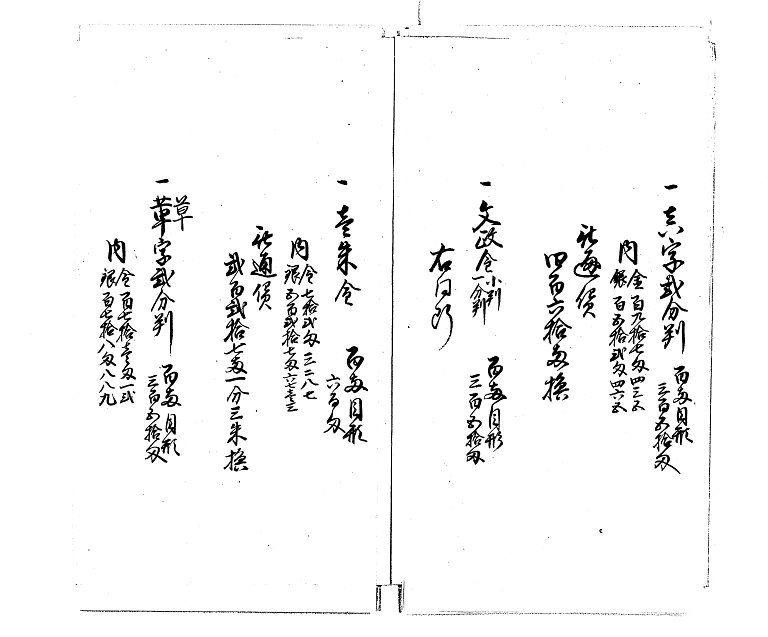 一 真字弐分判 百両目形
三百五拾匁
内 金 百九拾七匁四三五
銀 百五拾弐匁四六五
此通貨
四百六拾両換
一 文政金 小判 一分判 百両目形
三百五拾匁
右同断
一 壱朱金 百両目形
六百匁
内 金 七拾弐匁三二八七
銀 五百弐拾七匁六七壱三
此通貨
弐百弐拾七両一分三朱換
一 草字弐分判 百両目形
三百五拾匁
内 金 百七拾壱匁一弐
銀 百七拾八匁八八九